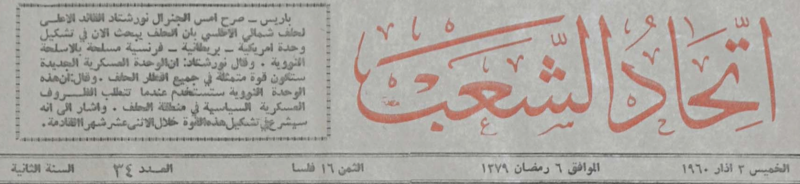 اتحاد الشعب
باريس – صرح امس الجنرال نورشتاد القائد الاعلى
لحلف شمالي الاطلسي بان الحلف يبحث الان في تشكيل
وحدة امريكية – بريطانية – فرنسية مسلحة بالاسلحة
النووية . وقال نورشتاد: ان الوحدة العسكرية الجديدة
ستكون قوة متمثلة في جميع اقطار الحلف . وقال: ان هذه
الوحدة النووية ستستخدم عندما تتطلب الظروف
العسكرية السياسية في منطقة الحلف . واشار الى انه
سيشرع في تشكيل هذه القوة خلال الاثنى عشر شهرا القادمة .
الخميس ٣ اذار ١٩٦٠ الموافق ٦ رمضان ١٣٧٩ الثمن ١٦ فلسا العدد ٣٤ السنة الثانية